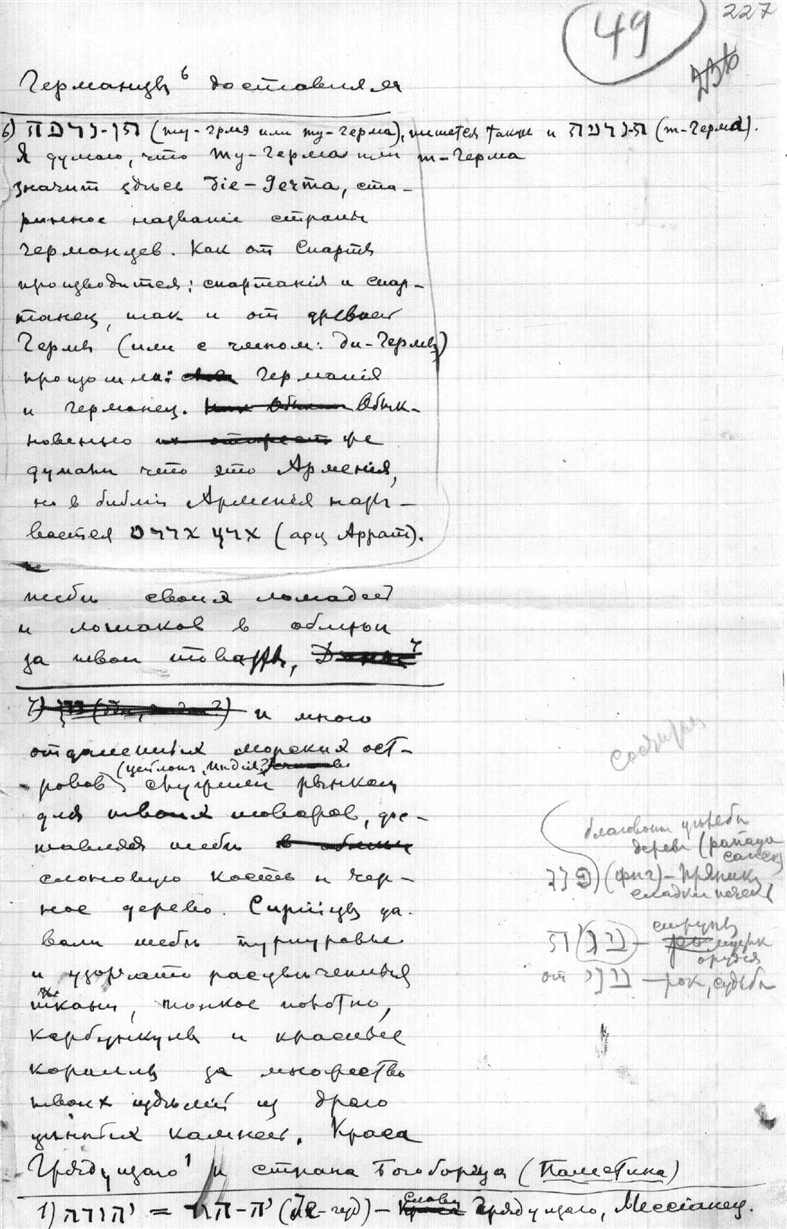 49
227
Германцы 6 доставляя
6) (ту-грмя или ту-герма), пишется также и (т-герма).
Я думаю, что ту-герма или т-герма
значит здесь die-Герма, ста-
ринное название страны
германцев. Как от Спарты
производится: спартанія и спар-
танец, так и от древней
Гермы (или с членом: ди-Гермы)
произошли: Германія
и германец. Обык-
новенно
думали что это Арменія,
но в библіи Арменія назы-
вается ארץ אררט (арц Аррат).
тебѣ своих лошадей
и лошаков в обмѣн
за твои товары, 7
7) и много
отдаленных морских ост-
ровов (Цейлон, Индія?) служили рынком
для твоих товаров, до-
ставляя тебѣ
слоновую кость и чер-
ное дерево. Сирійцы да-
вали тебѣ пурпуровые
и узорчато расцвѣченныя
ткани, тонкое полотно,
карбункулы и красивые
кораллы за множество
твоих издѣлій из драго
цѣнных камней. Краса
Грядущаго 1 и страна Богоборца (Палестина)
1) יהודה = יה-הוד (Іе-гуд) – слава Грядущаго, Мессіанец.
(фнг) – пряники
сладкія печен
струны
орудія
от – рок, судьба